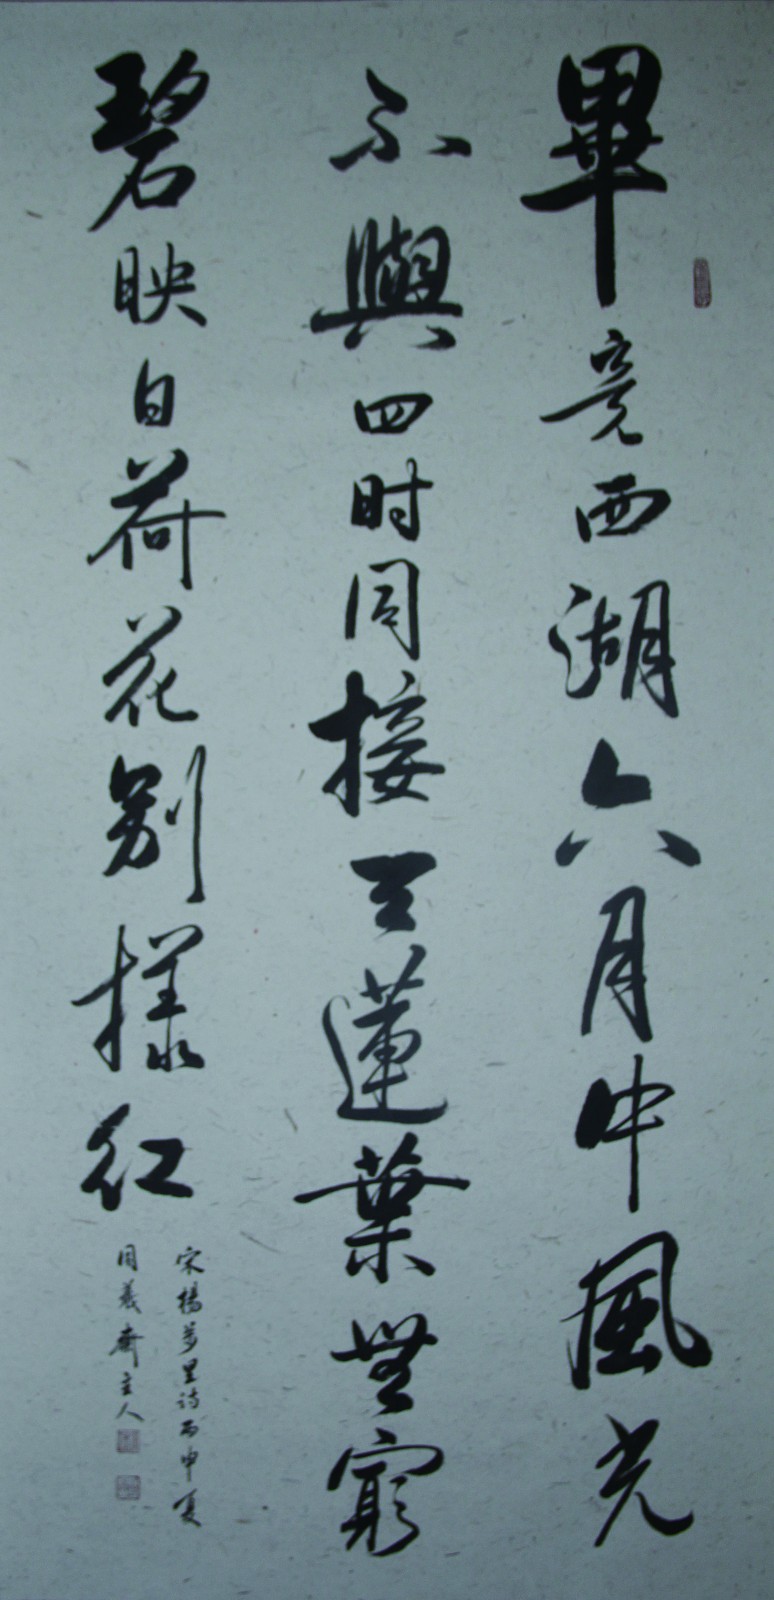 畢竟西湖六月中風光
不與四时同接天蓮葉無窮
碧映日荷花别樣紅
宋楊萬里詩丙申夏
同羲齋主人